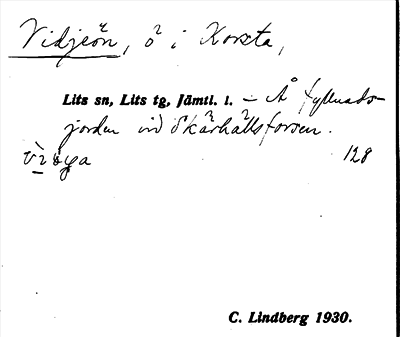 Vidjeön, ö i Korsta,
Lits sn, Lits tg, Jämtl. l. – Å fyllnads-
jorden vid Skårhållsforsen.
128
C. Lindberg 1930.